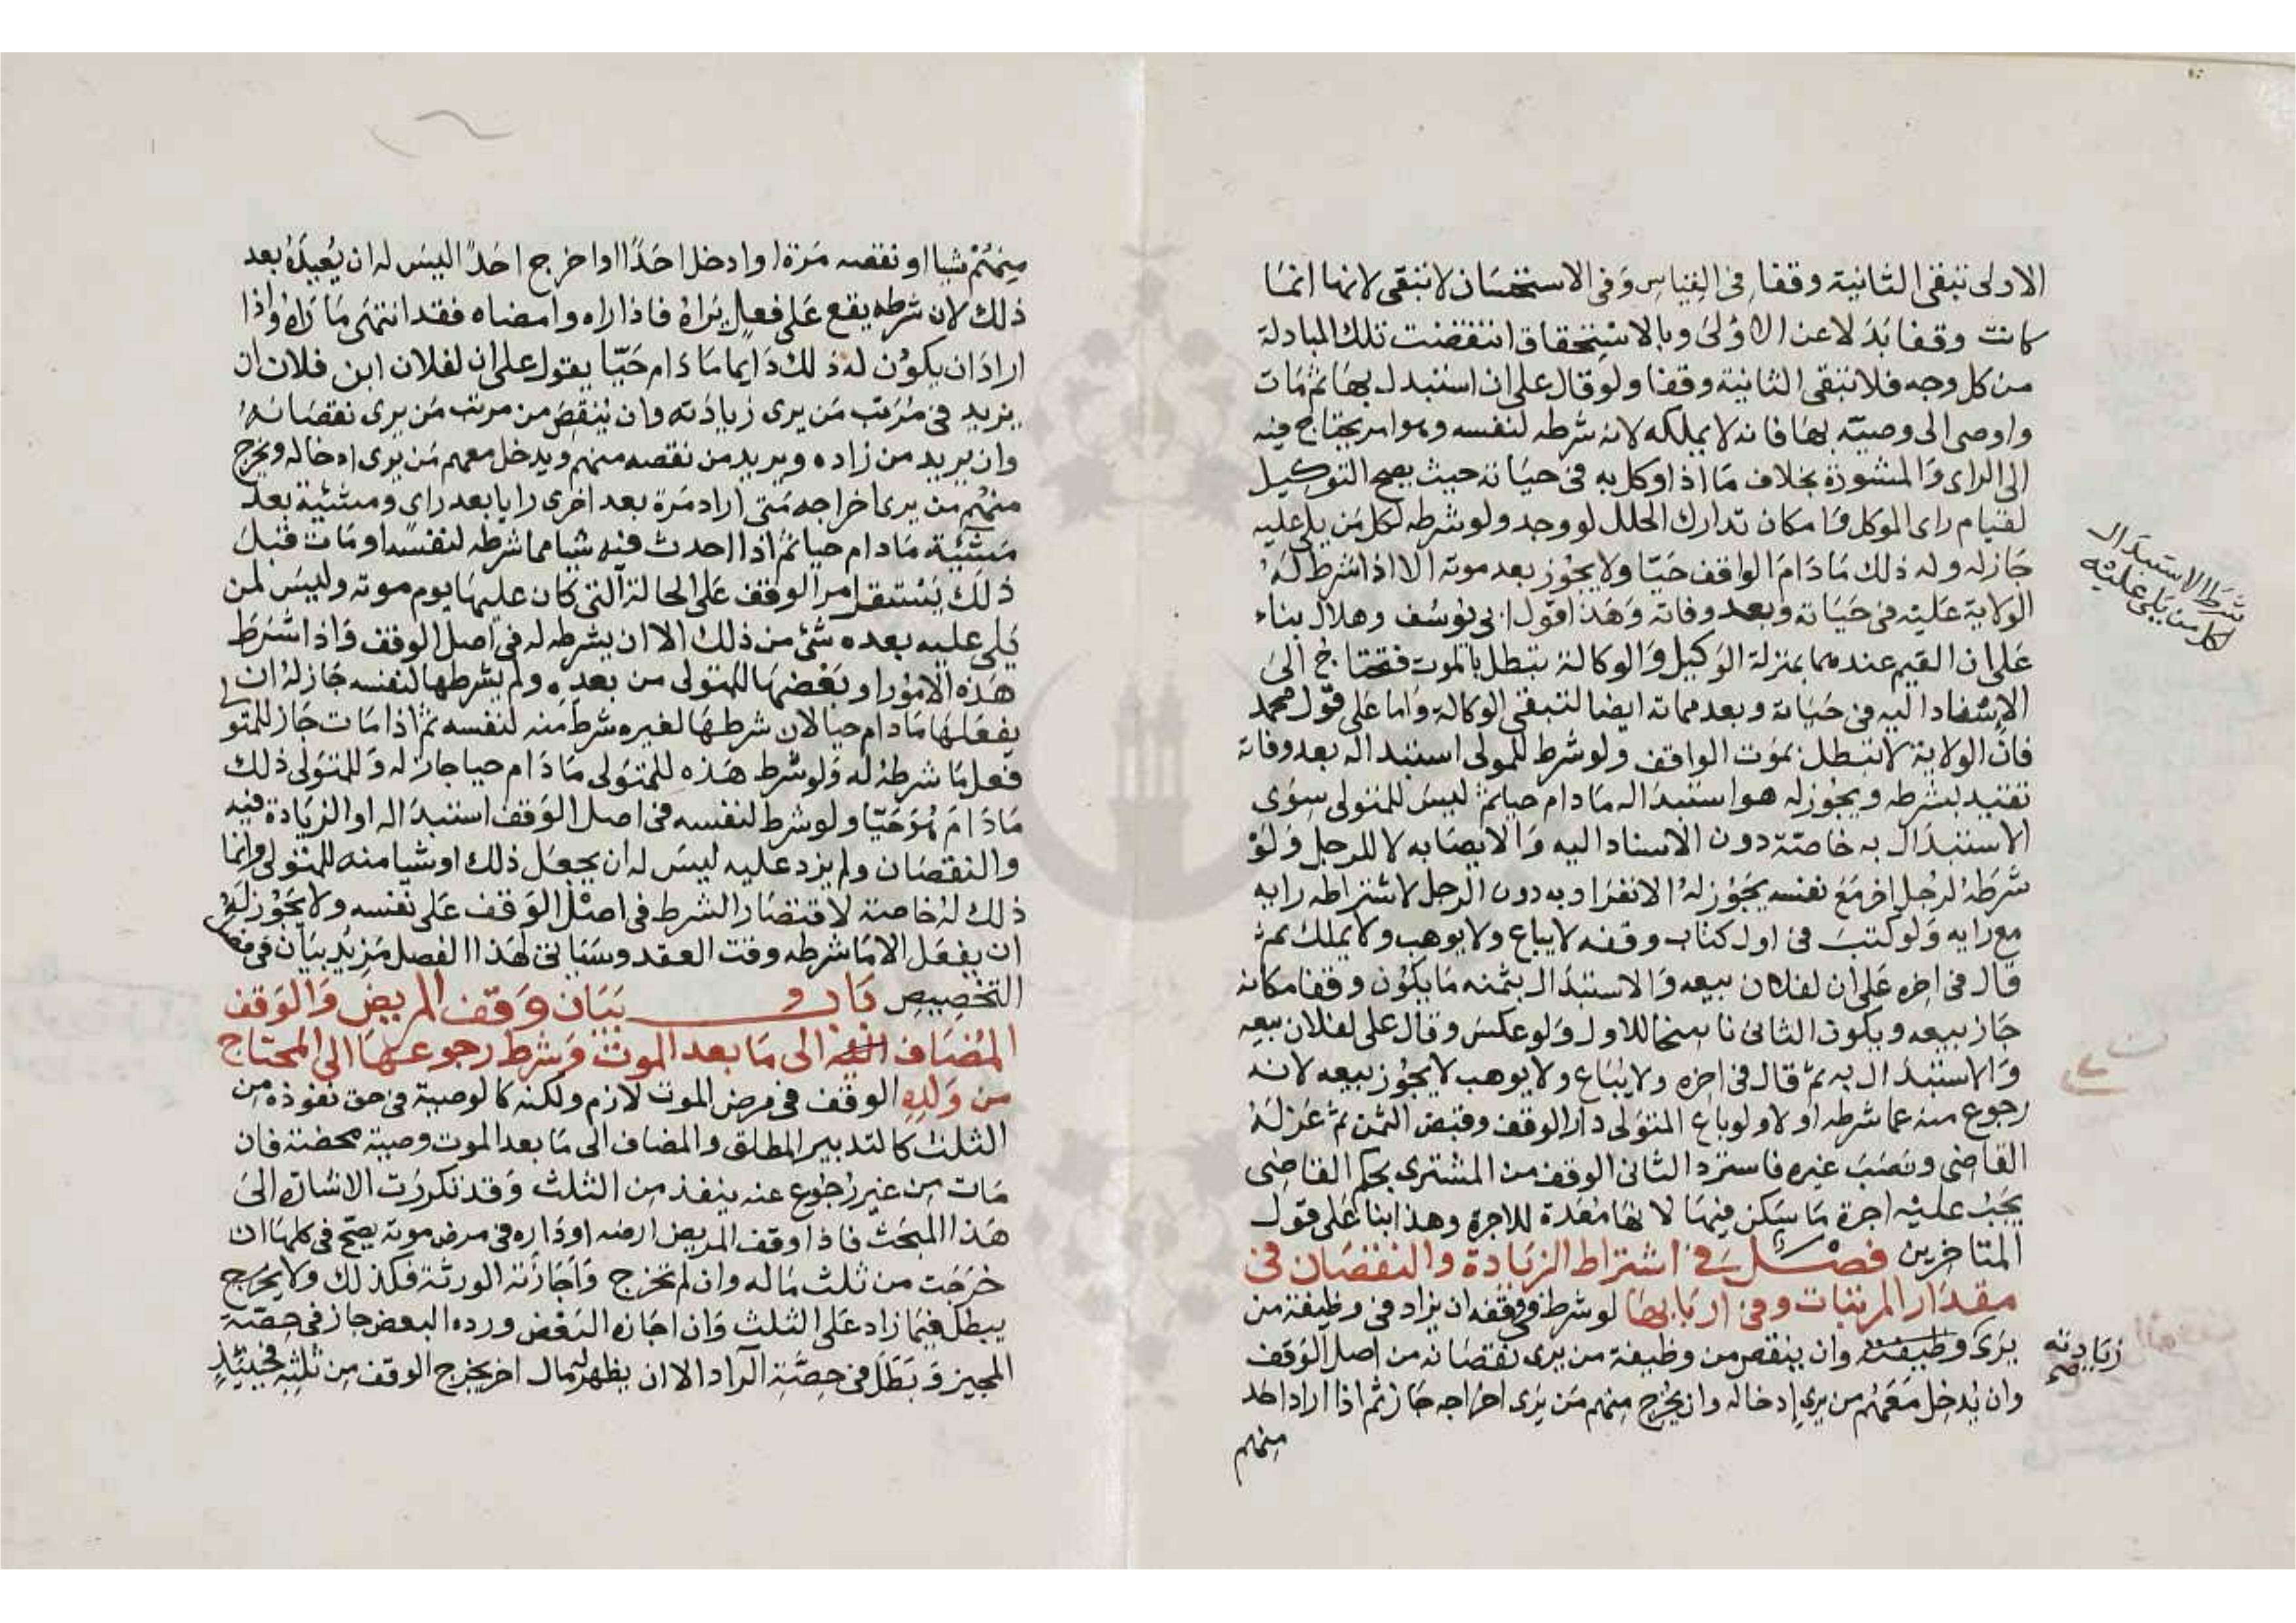 الاولى تبقى الثانية وقفا في القياس وفي الاستحسان لا تبقى لانها انما
كانت وقفا بدلا عن الاولى وبالاستحقاق انتقضت تلك المبادلة
من كل وجه فلا تبقى الثانية وقفا ولو قال على ان استبدل بها ثم مات
واوصى الى وصيه بها فانه لا يملكه لانه شرطه لنفسه وهو امر يحتاج فيه
الى الراى والمشورة بخلاف ما اذا وكل به في حياته حيث يصح التوكيل
لقيام راى الموكل وامكان تدارك الخلل لو وجد ولو شرطه لكل من يلى عليه
جاز له وله ذلك ما دام الواقف حيا ولا يجوز بعد موته الا اذا شرط له
الولاية عليه في حياته وبعد وفاته وهذا قول ابي يوسف وهلال بناء
على ان القيم عندهما بمنزلة الوكيل والوكالة تبطل بالموت فتحتاج الى
الاسناد اليه في حياته وبعد مماته ايضا لتبقى الوكالة واما على قول محمد
فان الولاية لا تبطل بموت الواقف ولو شرط للمولى استبداله بعد وفاته
تقيد بشرطه ويجوز له هو استبداله ما دام حيا ثم ليس للمتولى سوى
الاستبدال به خاصة دون الاسناد اليه والايصا به لا للرجل ولو
شرطه لرجل اخر مع نفسه يجوز له الانفراد به دون الرجل لاشتراطه رايه
مع رايه ولو كتب في اول كتاب وقفه لا يباع ولا يوهب ولا يملك ثم
قال في اخره على ان لفلان بيعه والاستبدال بثمنه ما يكون وقفا مكانه
جاز بيعه ويكون الثانى ناسخا للاول ولو عكس وقال على لفلان بيعه
والاستبدال به ثم قال في اخره ولا يباع ولا يوهب لا يجوز بيعه لانه
رجوع منه عما شرطه اولا ولو باع المتولى دار الوقف وقبض الثمن ثم عزله
القاضى ونصب غيره فاسترد الثانى الوقف من المشترى بحكم القاضى
يجب عليه اجرة ما سكن فيها لانها معدة للاجرة وهذا بنا على قول
المتاخرين فصل في اشتراط الزيادة والنقصان في
مقدار المرتبات وفي اربابها لو شرط في وقفه ان يزاد في وظيفة من
يرى وظيفته وان ينقص من وظيفة من يرى نقصانه من اصل الوقف
وان يدخل معهم من يرى ادخاله وان يخرج منهم من يرى اخراجه جاز ثم اذا اراد احد
منهم
شرط الاستبدال
لكل من يلى عليه
زيادته
صح
منهم شيا او نقصه مرة او ادخل احدا او اخرج احدا ليس له ان يعيده بعد
ذلك لان شرطه يقع على فعل يراه فاذا راه وامضاه فقد انتهى ما راه واذا
اراد ان يكون له ذلك دايما ما دام حيا يقول على ان لفلان ابن فلان ان
يزيد في مرتب من يرى زيادته وان ينقص من مرتب من يرى نقصانه
وان يريد من زاده ويريد من نقصه منهم ويدخل معهم من يرى ادخاله ويخرج
منهم من يرى اخراجه متى اراد مرة بعد اخرى رايا بعد راى ومشئية بعد
مشئية ما دام حيا ثم اذا احدث فيه شيا مما شرطه لنفسه او مات قبل
ذلك يستقل امر الوقف على الحالة التى كان عليها يوم موته وليس لمن
يلى عليه بعده شئ من ذلك الا ان يشرطه له في اصل الوقف واذا اشترط
هذه الامور او بعضها للمتولى من بعده ولم يشرطها لنفسه جاز له ان
يفعلها ما دام حيا لان شرطها لغيره شرط منه لنفسه ثم اذا مات جاز للمتولى
فعل ما شرطه له ولو شرط هذه للمتولى ما دام حيا جاز له وللمتولى ذلك
ما دام هو حيا ولو شرط لنفسه في اصل الوقف استبداله او الزيادة فيه
والنقصان ولم يزد عليه ليس له ان يجعل ذلك او شيا منه للمتولى وانما
ذلك له خاصة لاقتصار الشرط في اصل الوقف على نفسه ولا يجوز له
ان يفعل الا ما شرطه وقت العقد وسياتى لهذا الفصل مزيد بيان في فصل
التخصيص باب بيان وقف المريض والوقف
المضاف الى ما بعد الموت وشرط رجوعها الى المحتاج
من ولده الوقف في مرض الموت لازم ولكنه كالوصية في حق نفوذه من
الثلث كالتدبير المطلق والمضاف الى ما بعد الموت وصية محضة فان
مات من غير رجوع عنه ينفذ من الثلث وقد تكررت الاشارة الى
هذا المبحث فاذا وقف المريض ارضه او داره في مرض موته يصح في كلها ان
خرجت من ثلث ماله وان لم تخرج واجازته الورثة فكذلك ولا يخرج
يبطل فيما زاد على الثلث وان اجازه البعض ورده البعض جاز في حصة
المجيز وبطل في حصة الراد الا ان يظهر له مال اخر يخرج الوقف من ثلثه فحينئذ